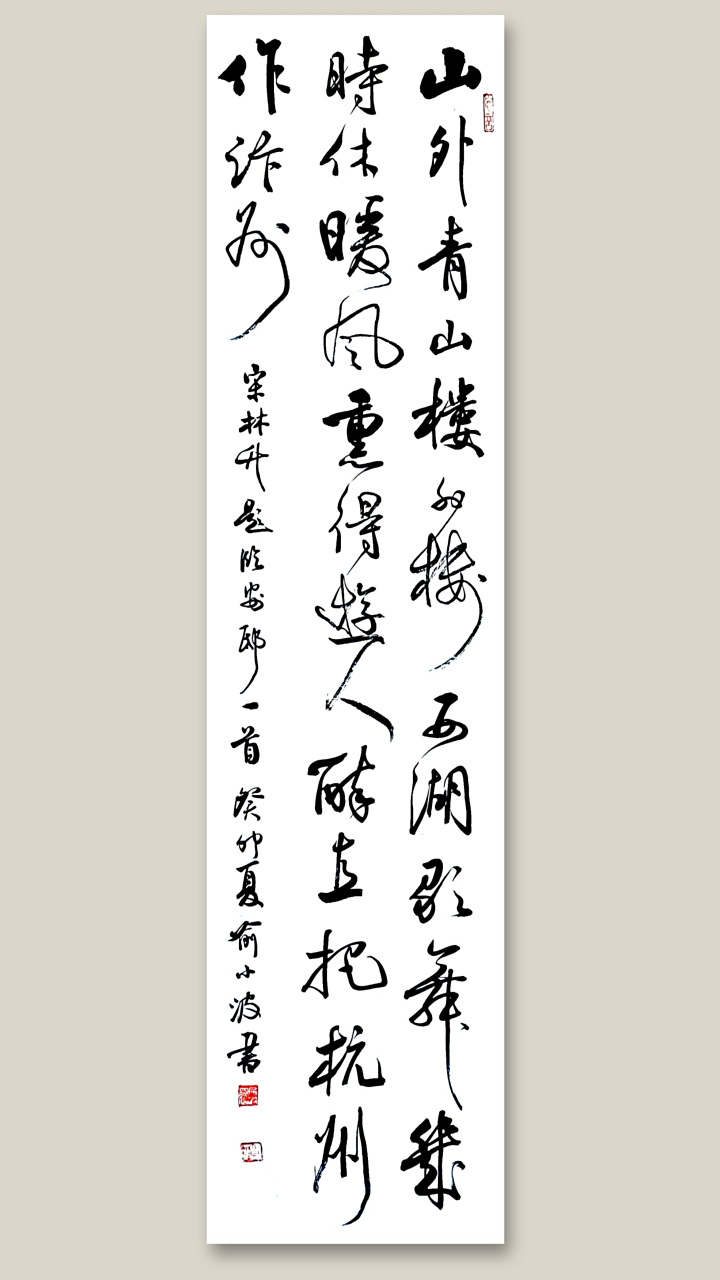 山外青山樓外樓西湖歌舞幾
時休暖风熏得遊人醉直把杭州
作汴州
宋林升題臨安邸一首癸卯夏俞小波書